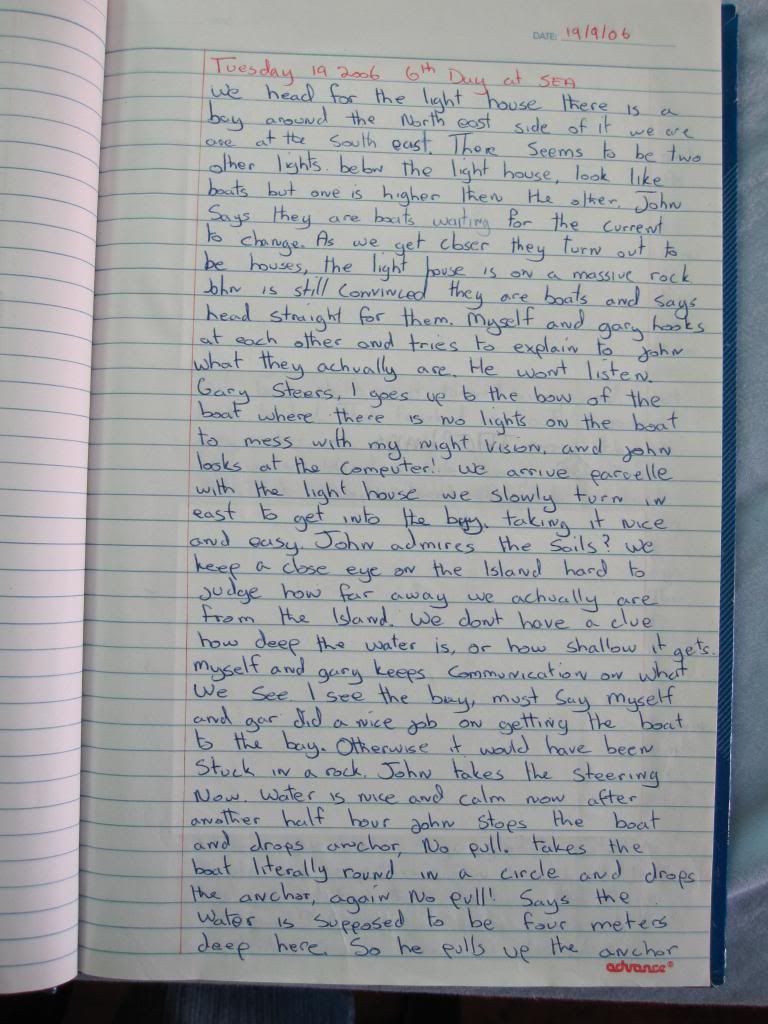 DATE: 19/9/06
Tuesday 19 2006 6th Day at SEA
We head for the light house there is a
bay around the North east side of it we are
are at the South east. There seems to be two
other lights. below the light house, look like
boats but one is higher then the other. John
Says they are boats waiting for the current
to change. As we get closer they turn out to
be houses, the light house is on a massive rock
John is still convinced they are boats and says
head straight for them. Myself and gary looks
at each other and tries to explain to John
what they achually are. He wont listen.
Gary Steers, I goes up to the bow of the
boat where there is no lights on the boat
to mess with my night vision, and john
looks at the computer! we arrive parcelle
with the light house we slowly turn in
east to get into the bay. taking it nice
and easy. John admires the Sails? we
keep a close eye on the Island hard to
Judge how far away we achually are
from the Island. We dont have a clue
how deep the water is, or how shallow it gets.
myself and gary keeps communication on what
We See. I see the bay, must say myself
and gar did a nice job on getting the boat
to the bay. Otherwise it would have been
Stuck in a rock. John takes the steering
Now. Water is nice and calm now after
another half hour john stops the boat
and drops anchor, No pull. takes the
boat literally round in a circle and drops
the anchor, again No pull! Says the
Water is supposed to be four meters
deep here. So he pulls up the anchor
advance®